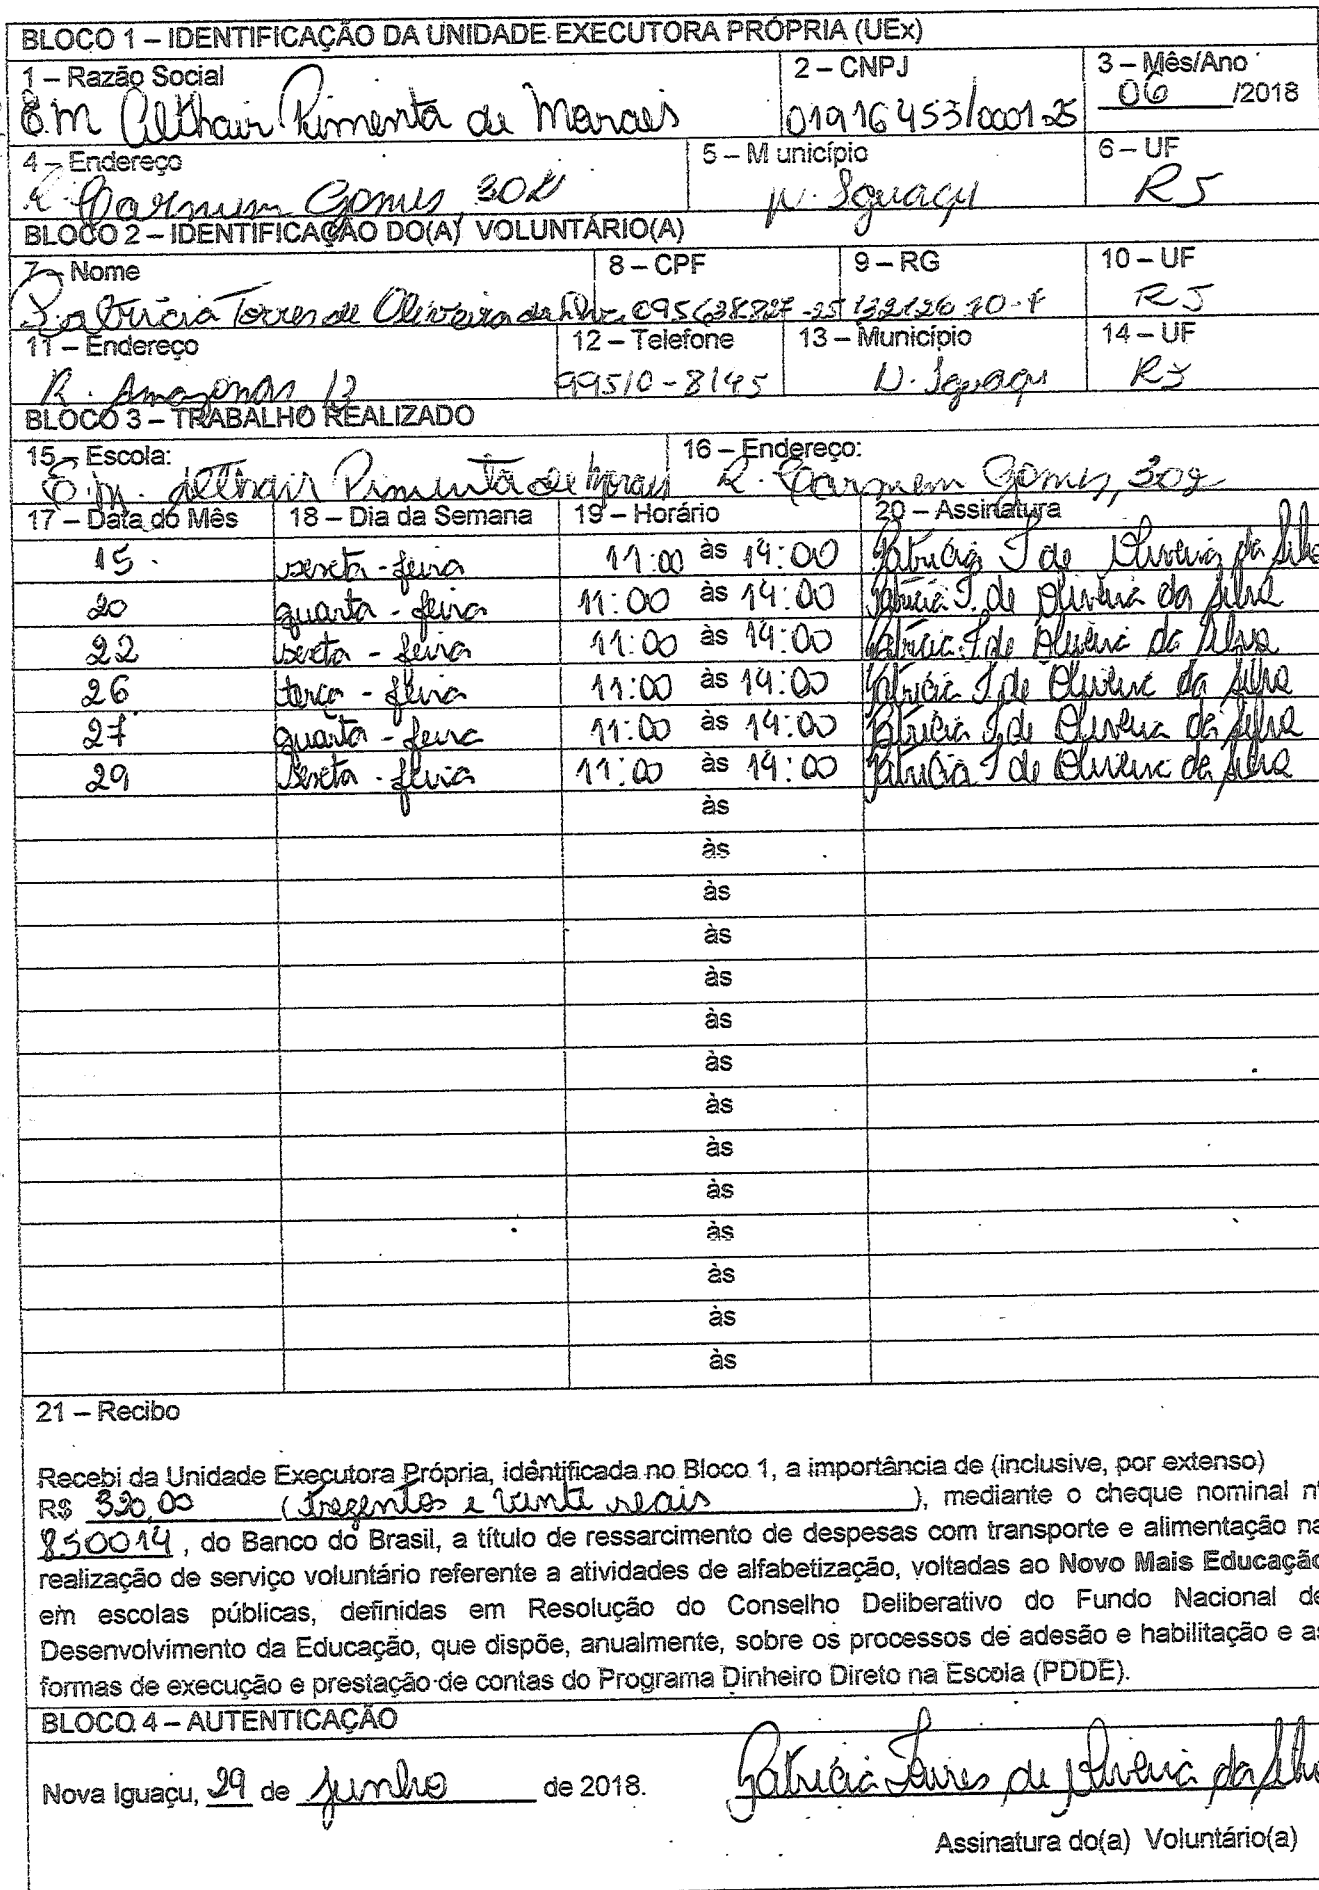 BLOCO 1 – IDENTIFICAÇÃO DA UNIDADE EXECUTORA PRÓPRIA (UEx)
1 – Razão Social 2 – CNPJ 3 – Mês/Ano
E.M Althair Pimenta de Moraes 01916453/0001-25 06 /2018
4 – Endereço 5 – M unicípio 6 – UF
R. Carmem Gomes, 302 N. Iguaçu RJ
BLOCO 2 – IDENTIFICAÇÃO DO(A) VOLUNTÁRIO(A)
7 – Nome 8 – CPF 9 – RG 10 – UF
Patrícia Torres de Oliveira da Silva 095638827-25 RJ
11 – Endereço 12 – Telefone 13 – Município 14 – UF
R. Amazonas 13 99510-8145 N. Iguaçu RJ
BLOCO 3 – TRABALHO REALIZADO
15 – Escola: 16 – Endereço:
E.M. Althair Pimenta de Moraes R. Carmem Gomes, 302
17 – Data do Mês 18 – Dia da Semana 19 – Horário 20 – Assinatura
15 sexta-feira 11:00 às 14:00 Patrícia T de Oliveira da Silva
20 quarta-feira 11:00 às 14:00 Patrícia T. de Oliveira da Silva
22 sexta-feira 11:00 às 14:00 Patrícia T de Oliveira da Silva
26 terça-feira 11:00 às 14:00 Patrícia T de Oliveira da Silva
27 quarta-feira 11:00 às 14:00 Patrícia T de Oliveira da Silva
29 sexta-feira 11:00 às 14:00 Patrícia T de Oliveira da Silva
às
às
às
às
às
às
às
às
às
às
às
às
às
às
21 – Recibo
Recebi da Unidade Executora Própria, identificada no Bloco 1, a importância de (inclusive, por extenso)
R$ 320,00 (Trezentos e vinte reais), mediante o cheque nominal nº
850014, do Banco do Brasil, a título de ressarcimento de despesas com transporte e alimentação na
realização de serviço voluntário referente a atividades de alfabetização, voltadas ao Novo Mais Educação
em escolas públicas, definidas em Resolução do Conselho Deliberativo do Fundo Nacional de
Desenvolvimento da Educação, que dispõe, anualmente, sobre os processos de adesão e habilitação e as
formas de execução e prestação de contas do Programa Dinheiro Direto na Escola (PDDE).
BLOCO 4 – AUTENTICAÇÃO
Nova Iguaçu, 29 de junho de 2018. Patrícia Torres de Oliveira da Silva
Assinatura do(a) Voluntário(a)